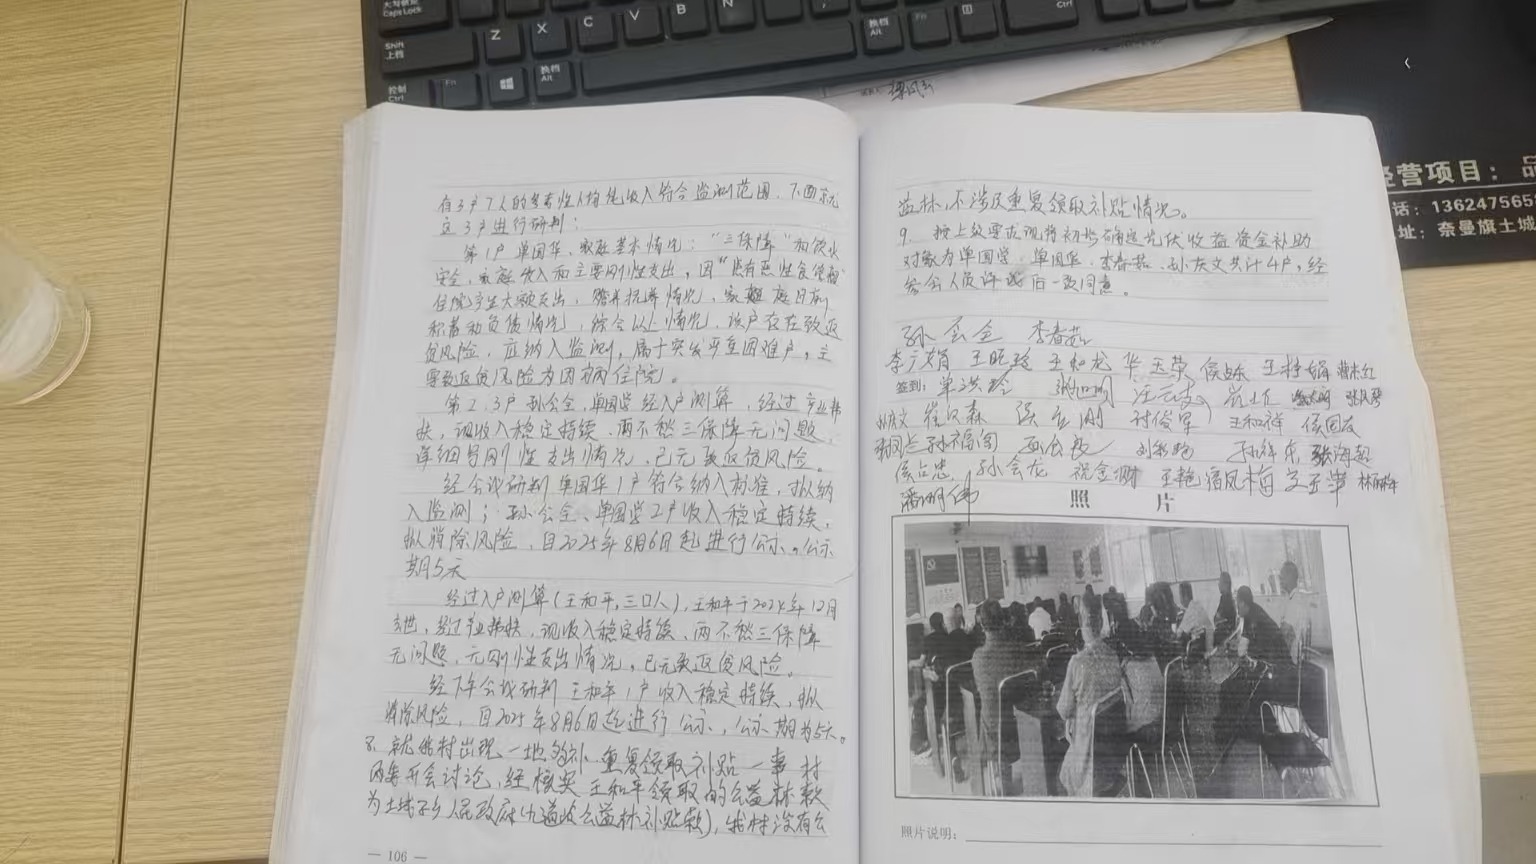 有3户7人的务农性人均纯收入符合监测范围,下面就先
这3户进行研判:
第1户单国华、家庭基本情况:"三保障"和饮水
安全,家庭收入和主要刚性支出,因"患有恶性食管癌"
住院产生大额支出,赡养抚养情况,家庭 目前
积蓄和负债情况,综合以上情况,该户存在致返
贫风险,应纳入监测,属于突发严重困难户,主
要致返贫风险为因病住院。
第2、3户孙会全,单国学经入户测算,经过产业帮
扶,现收入稳定持续、两不愁三保障无问题,
刚性支出情况,已无致返贫风险。
经会议研判单国华1户符合纳入标准,拟纳
入监测;孙会全、单国学2户收入稳定持续,
拟消除风险,自2025年8月6日起进行公示。公示
期5天
经过入户测算(王和平,三口人),王和平于2024年12月
去世,经过产业帮扶,现收入稳定持续、两不愁三保障
无问题,无刚性支出情况,已无致返贫风险。
经下午会议研判王和平1户收入稳定持续,拟
消除风险,自2025年8月6日起进行公示,公示期为5天。
8、就我村出现一地多补、重复领取补贴一事村
两委开会讨论,经核实王和平领取的公益林款
为土城子乡人民政府(九道收公益林补贴款),我村没有公
— 106 —
益林,不涉及重复领取补贴情况。
9、按上级要求现将初步确定光伏收益资金补助
对象为单国学、单国华、李春茹、孙庆文共计4户,经
参会人员评议后一致同意。
孙会全 李春茹
王晓玲 王和龙 华玉荣
签到:单洪玲
崔汉森 付俊军 王和祥 侯国友
孙福阁 张海超
侯占忠 孙会龙 祝金刚 王艳
潘明伟
照 片
照片说明:
Caps Lock
Z X C V B N
Shift
上档
换档
Alt
Fn
Ctrl
控制
Ctrl
Fn
换档
Alt
经营项目:品
话:1362475655
址:奈曼旗土城